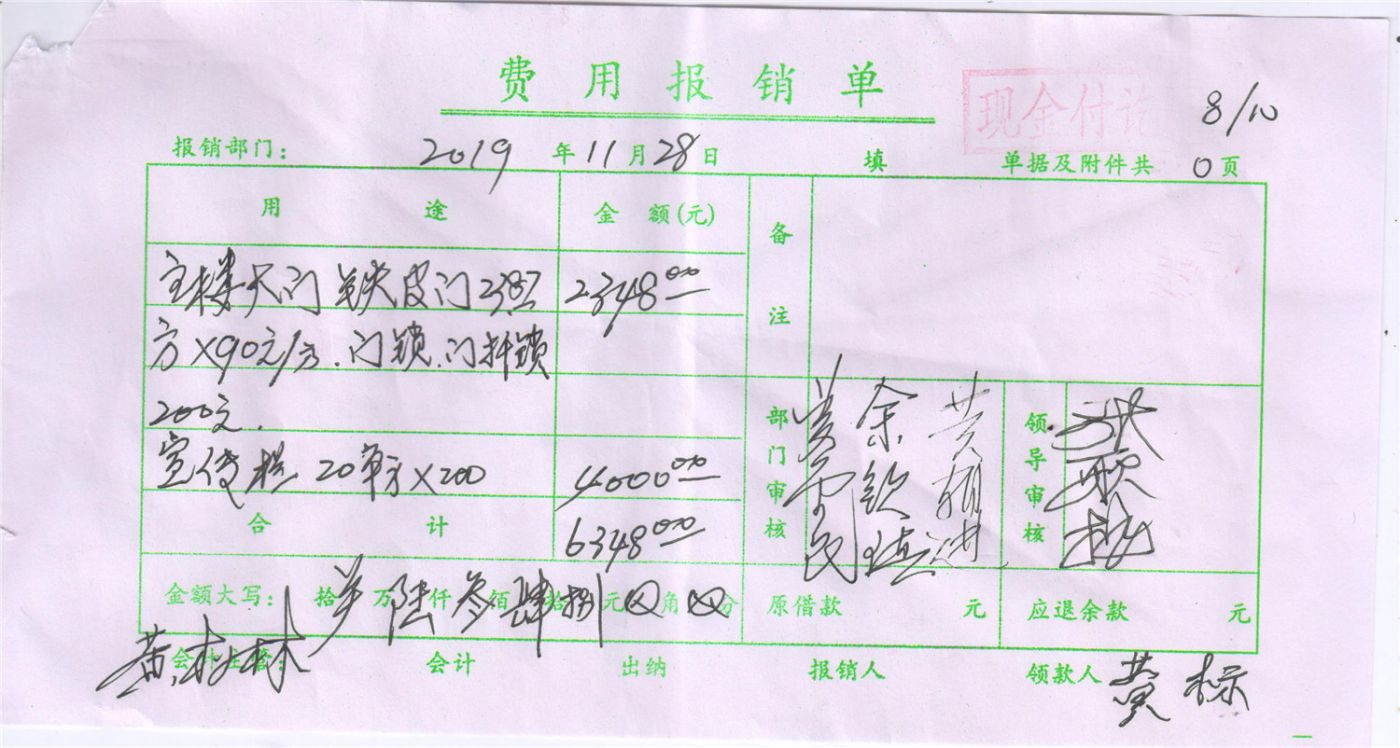 费用报销单
现金付讫
8/10
报销部门: 2019年11月28日 填 单据及附件共0页
用途 金额(元) 备注
主楼大门 铁皮门23.87 2348.00
方×90元/方.门锁.门扦锁
200元.
宣传栏 20平方×200 4000.00
合计 6348.00
部门审核 黄 余钦 黄
领导审核
金额大写: 拾 万陆仟叁佰肆拾捌元⊗角⊗分 原借款 元 应退余款 元
会计主管: 黄林 会计 出纳 报销人 领款人 黄标